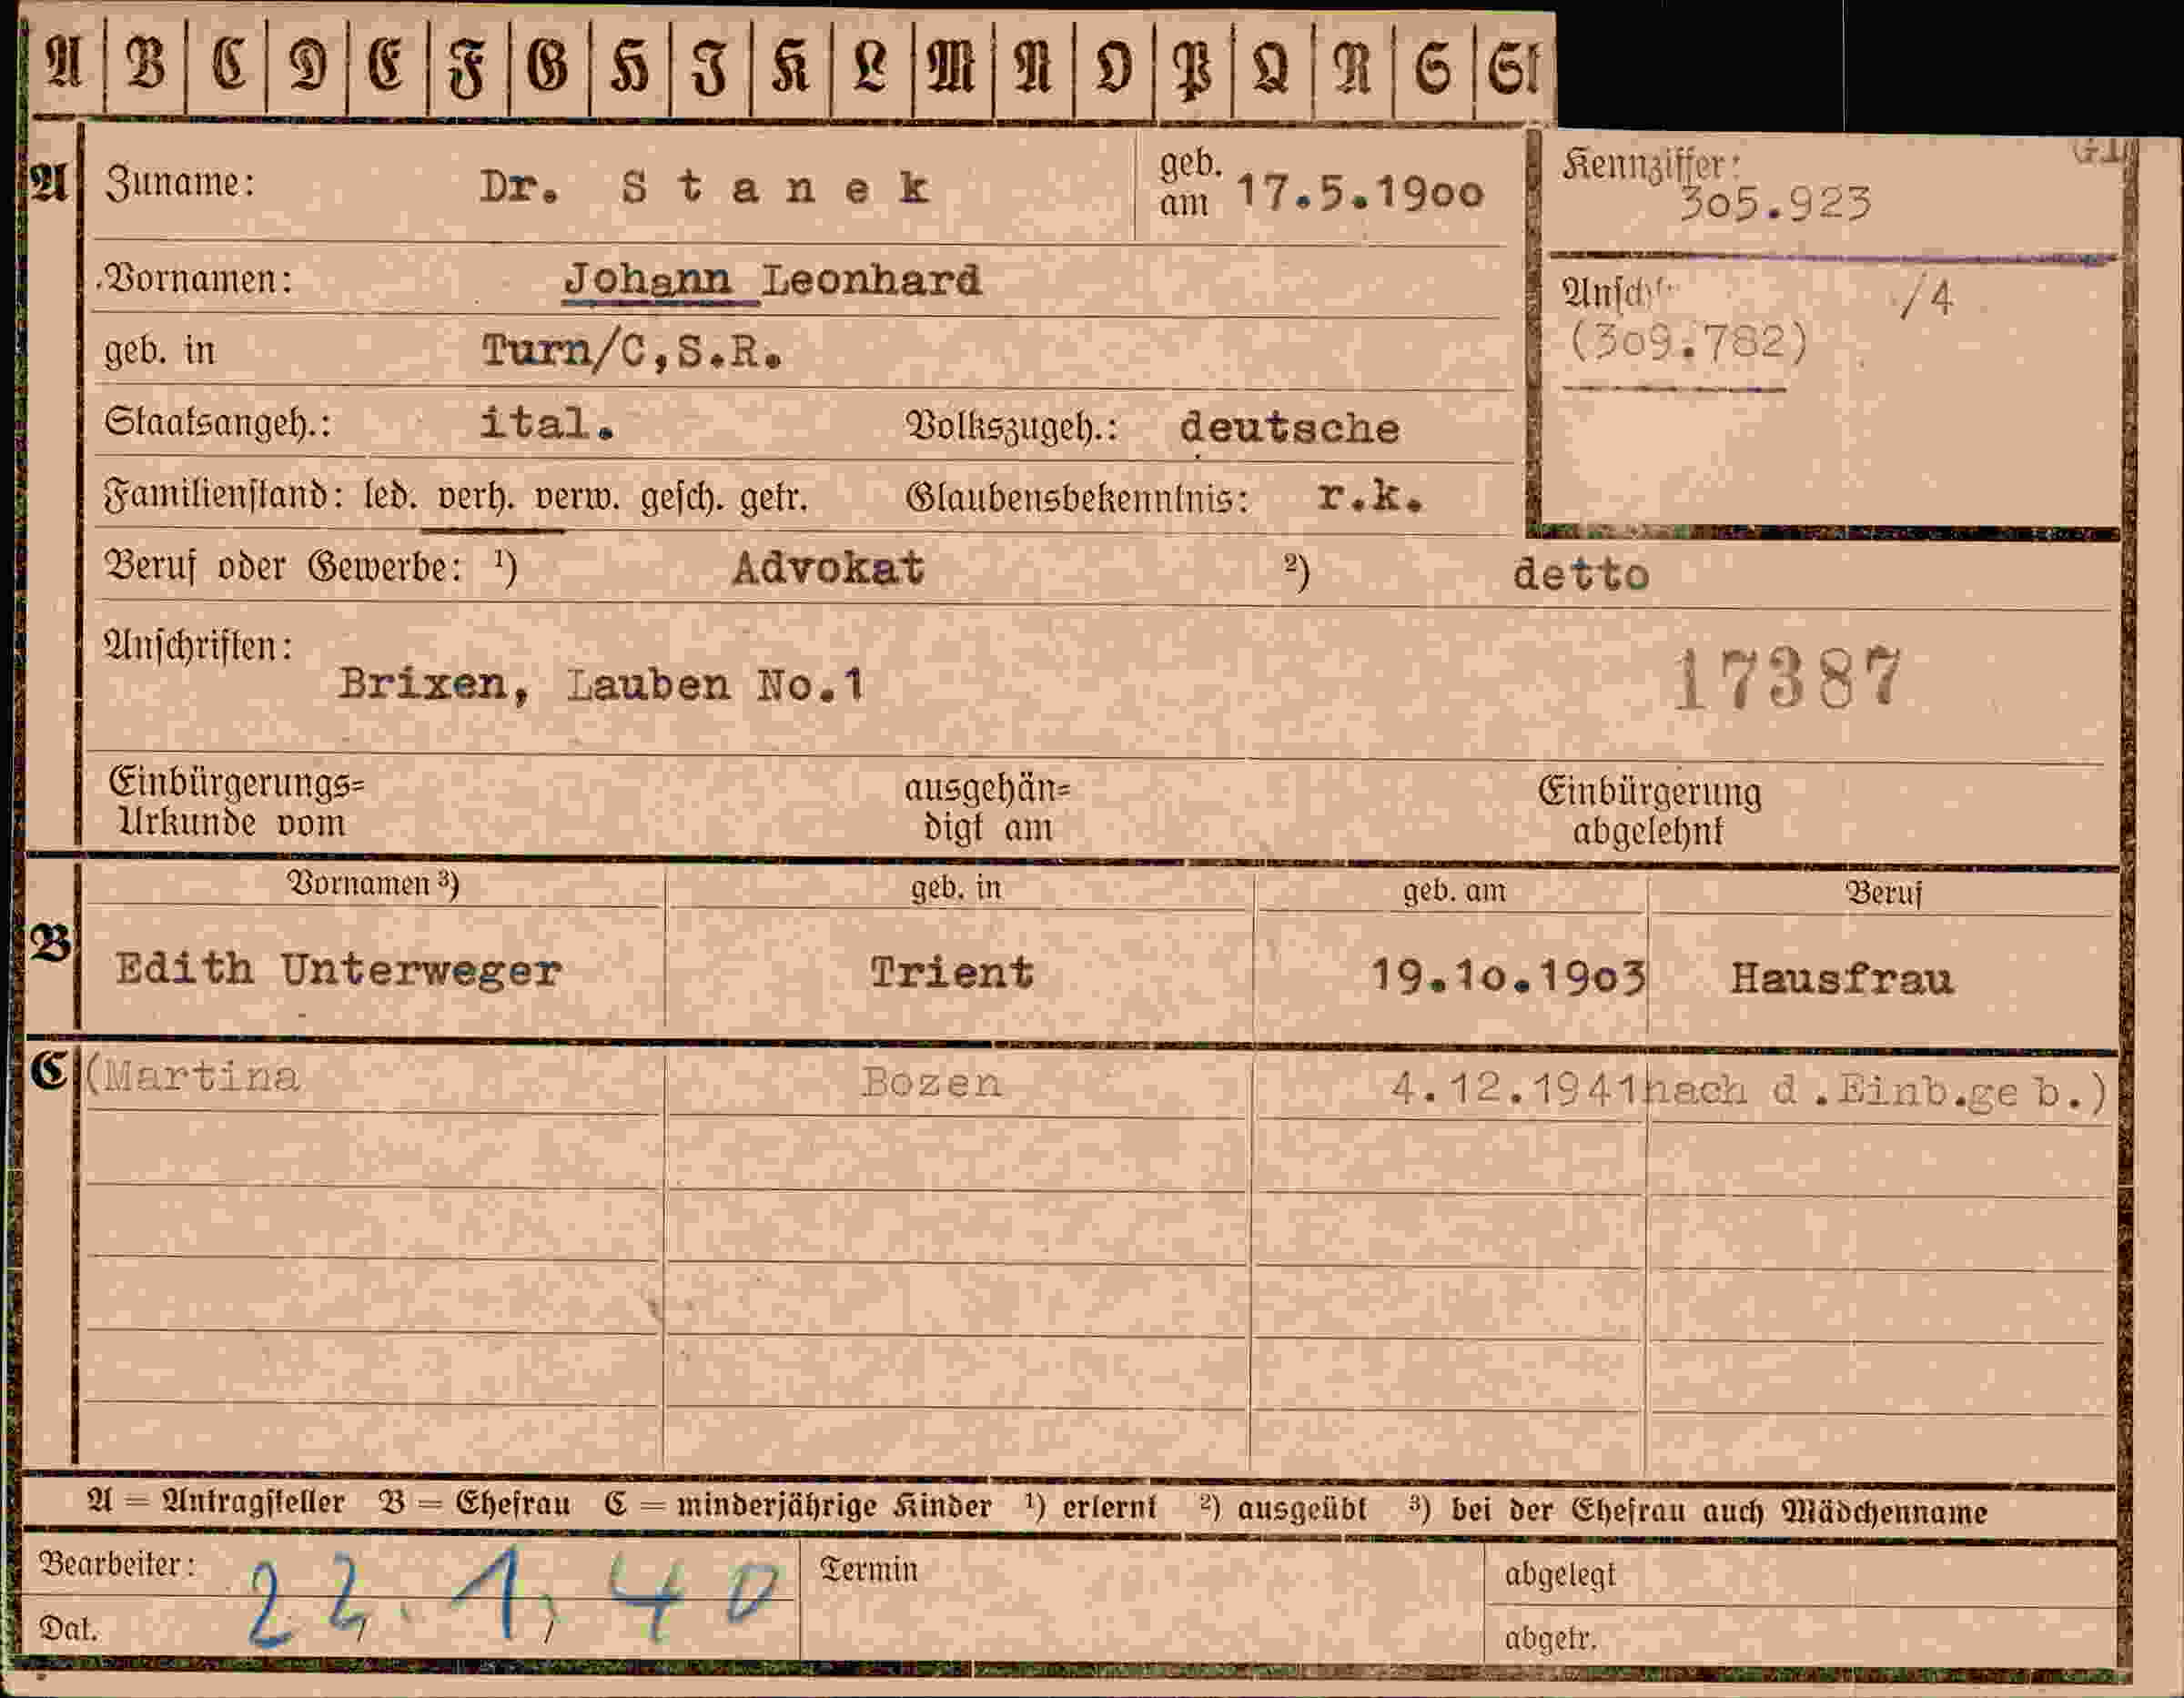 A B C D E F G H I K L M N O P Q R S St
A Zuname: Dr. Stanek geb. am 17.5.1900 Kennziffer: 305.923
Vornamen: Johann Leonhard /4
(309.782)
geb. in Turn/C,S.R.
Staatsangeh.: ital. Volkszugeh.: deutsche
Familienstand: led. verh. verw. gesch. getr. Glaubensbekenntnis: r.k.
Beruf oder Gewerbe: ¹) Advokat ²) detto
Anschriften:
Brixen, Lauben No.1 17387
Einbürgerungs= ausgehän= Einbürgerung
Urkunde vom digt am abgelehnt
Vornamen ³) geb. in geb. am Beruf
B Edith Unterweger Trient 19.10.1903 Hausfrau
C (Martina Bozen 4.12.1941 nach d.Einb.geb.)
A = Antragsteller B = Ehefrau C = minderjährige Kinder ¹) erlernt ²) ausgeübt ³) bei der Ehefrau auch Mädchenname
Bearbeiter: 22.1,40 Termin abgelegt
Dat. abgetr.